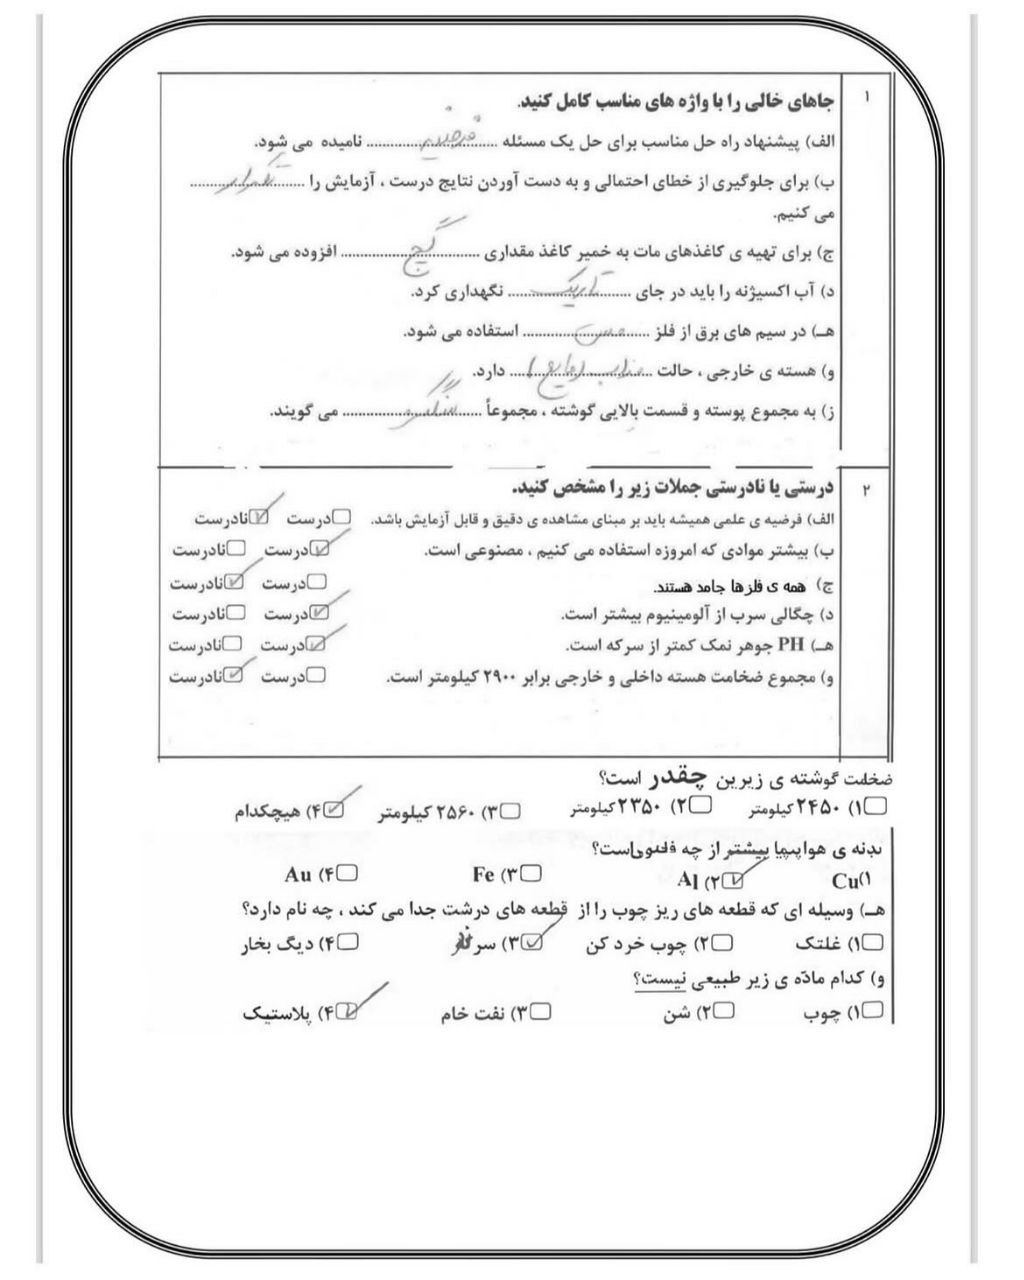 ۱
جاهای خالی را با واژه های مناسب کامل کنید.
الف) پیشنهاد راه حل مناسب برای حل یک مسئله ......فرضیه...... نامیده می شود.
ب) برای جلوگیری از خطای احتمالی و به دست آوردن نتایج درست ، آزمایش را ......تکرار......
می کنیم.
ج) برای تهیه ی کاغذهای مات به خمیر کاغذ مقداری ......گچ...... افزوده می شود.
د) آب اکسیژنه را باید در جای ......تاریک...... نگهداری کرد.
هـ) در سیم های برق از فلز ......مس...... استفاده می شود.
و) هسته ی خارجی ، حالت ......مذاب (مایع)...... دارد.
ز) به مجموع پوسته و قسمت بالایی گوشته ، مجموعاً ......سنگ کره...... می گویند.
۲
درستی یا نادرستی جملات زیر را مشخص کنید.
الف) فرضیه ی علمی همیشه باید بر مبنای مشاهده ی دقیق و قابل آزمایش باشد. درست نادرست
ب) بیشتر موادی که امروزه استفاده می کنیم ، مصنوعی است. درست نادرست
ج) همه ی فلزها جامد هستند. درست نادرست
د) چگالی سرب از آلومینیوم بیشتر است. درست نادرست
هـ) PH جوهر نمک کمتر از سرکه است. درست نادرست
و) مجموع ضخامت هسته داخلی و خارجی برابر ۲۹۰۰ کیلومتر است. درست نادرست
ضخامت گوشته ی زیرین چقدر است؟
۱) ۲۴۵۰ کیلومتر ۲) ۲۳۵۰ کیلومتر ۳) ۲۵۶۰ کیلومتر ۴) هیچکدام
بدنه ی هواپیما بیشتر از چه فلزی است؟
۱) Cu ۲) Al ۳) Fe ۴) Au
هـ) وسیله ای که قطعه های ریز چوب را از قطعه های درشت جدا می کند ، چه نام دارد؟
۱) غلتک ۲) چوب خرد کن ۳) سرند ۴) دیگ بخار
و) کدام مادّه ی زیر طبیعی نیست؟
۱) چوب ۲) شن ۳) نفت خام ۴) پلاستیک